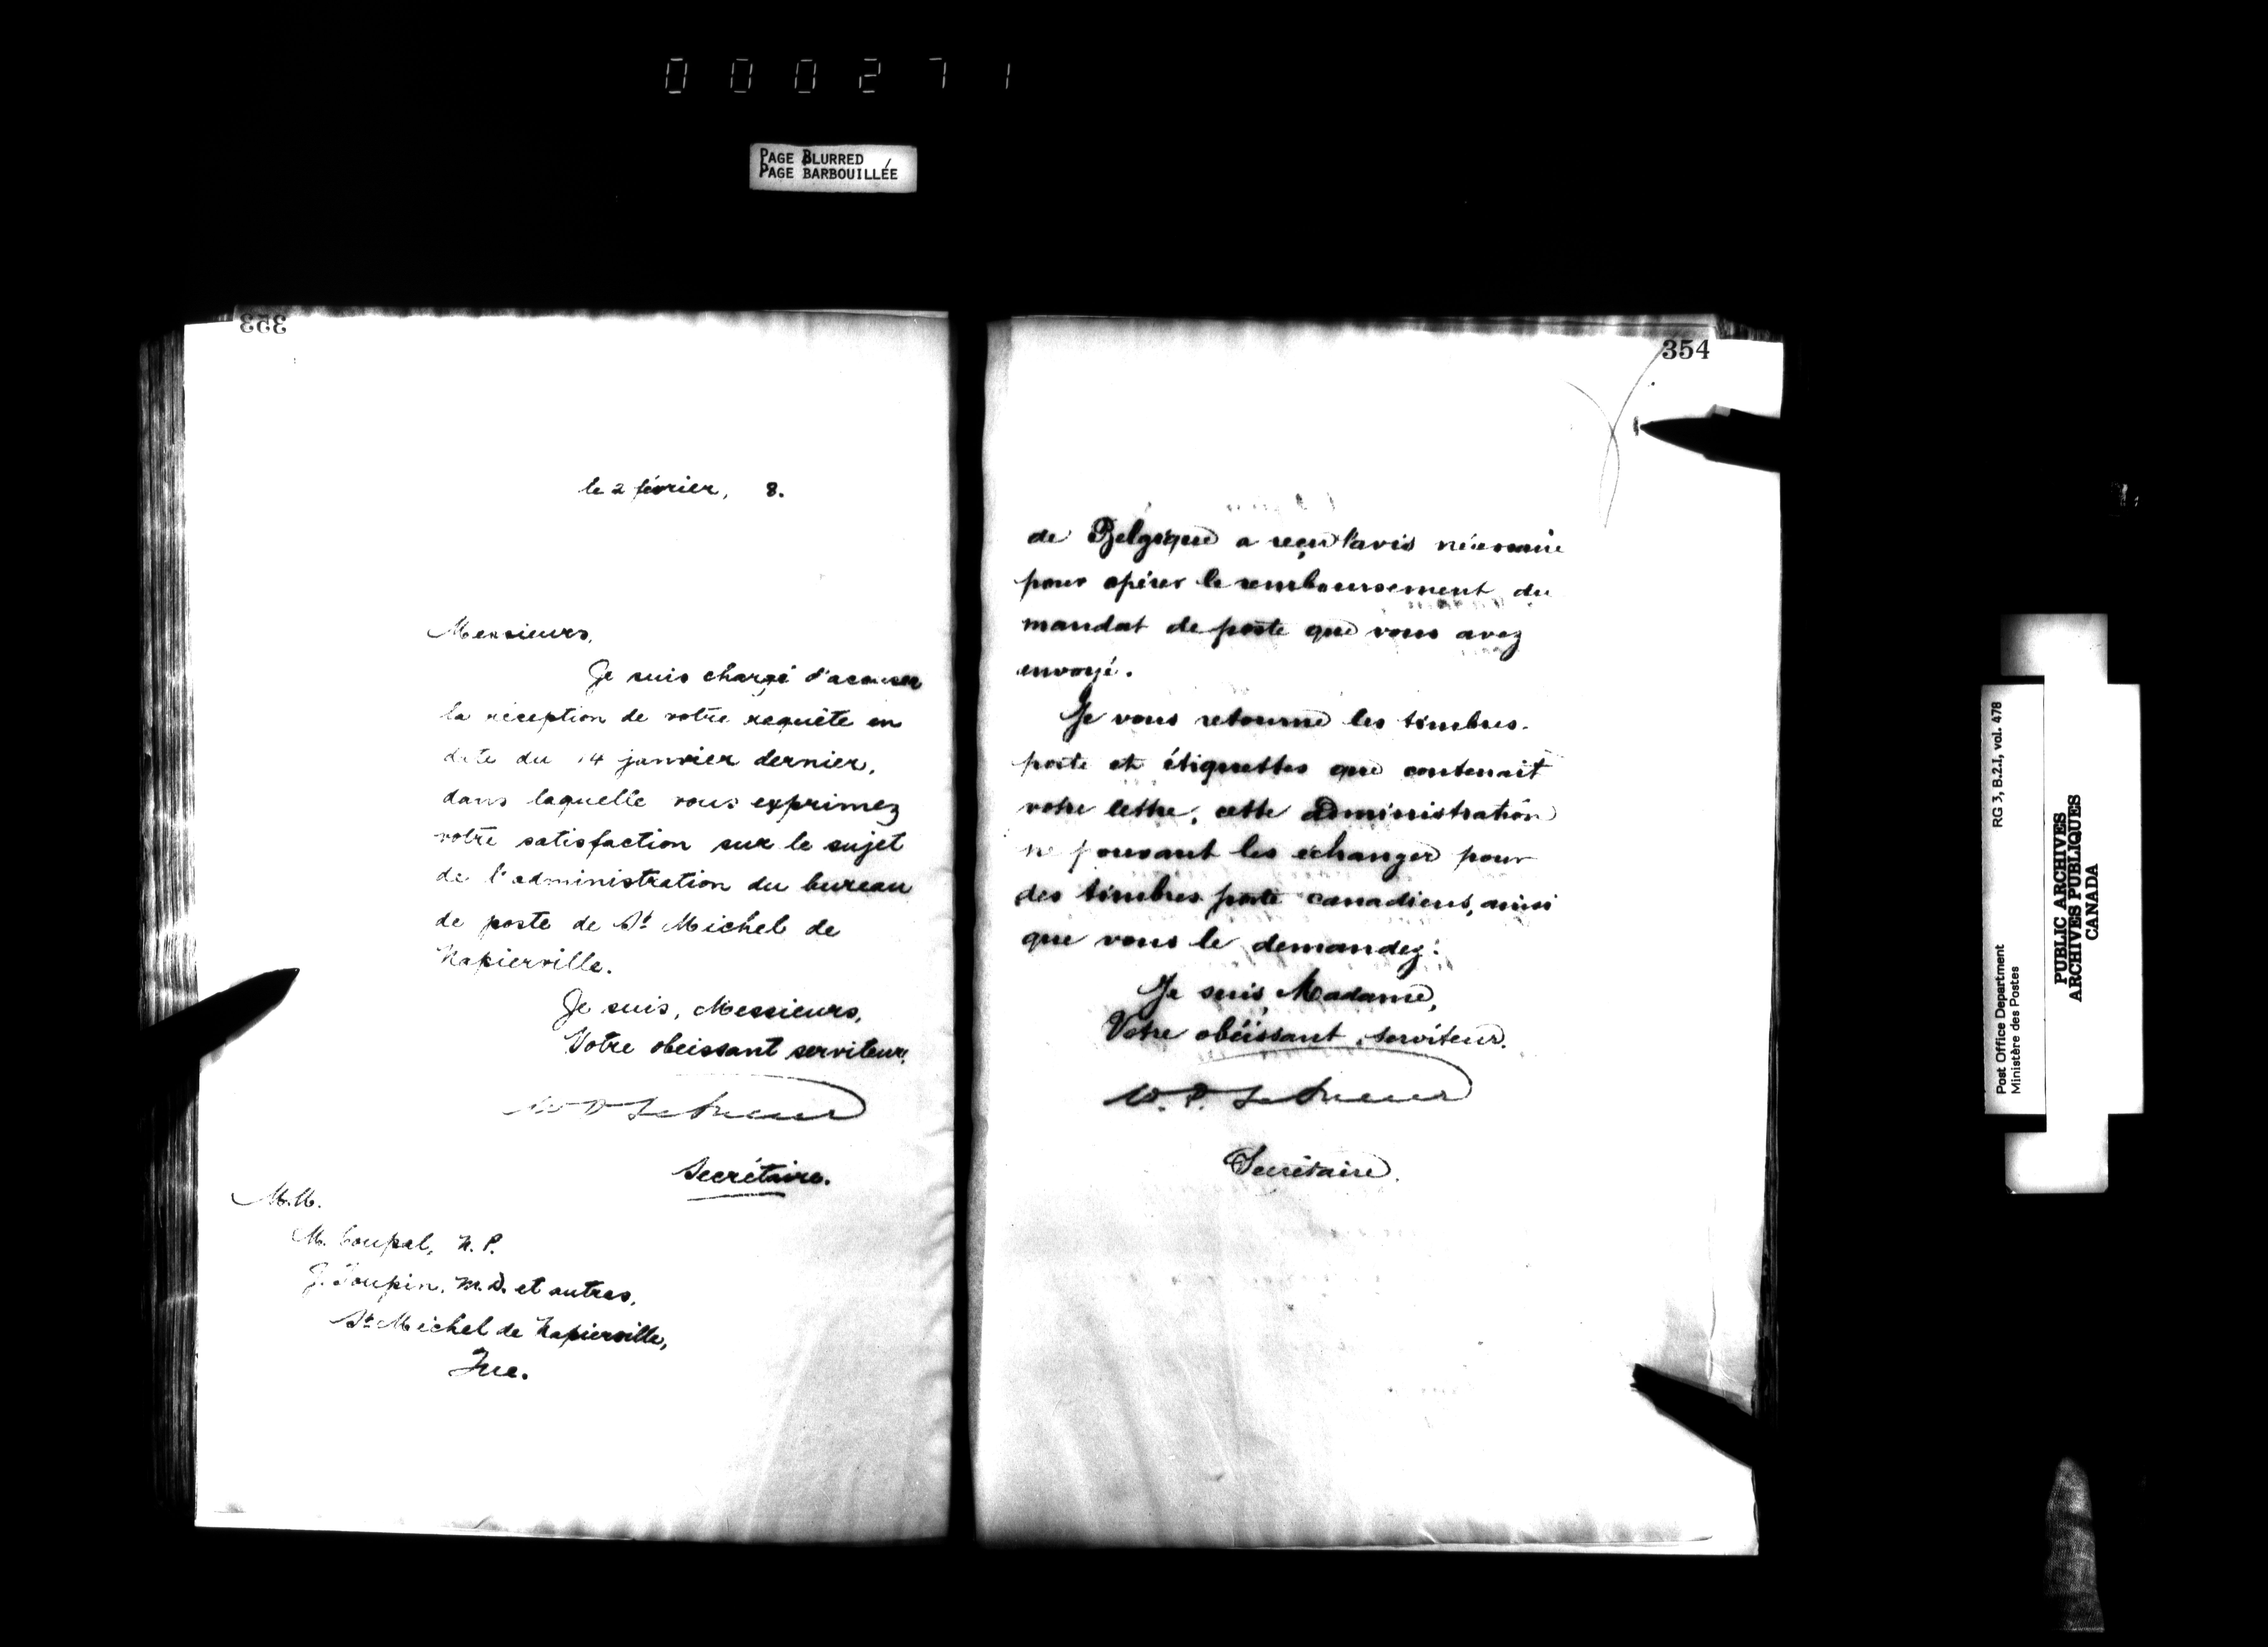 000271
PAGE BLURRED
PAGE BARBOUILLÉE
353
le 2 février, 8.
Messieurs,
Je suis chargé d'accuser
la réception de votre requête en
date du 14 janvier dernier,
dans laquelle vous exprimez
votre satisfaction sur le sujet
de l'administration du bureau
de poste de St Michel de
Napierville.
Je suis, Messieurs,
Votre obéissant serviteur,
W D LeSueur
Secrétaire.
M.M.
M. Coupal, N. P.
J. Toupin, M.D. et autres,
St Michel de Napierville,
Que.
354
de Belgique a reçu l'avis nécessaire
pour opérer le remboursement du
mandat de poste que vous avez
envoyé.
Je vous retourne les timbres-
poste et étiquettes que contenait
votre lettre, cette administration
ne pouvant les échanger pour
des timbres poste canadiens, ainsi
que vous le demandez.
Je suis, Madame,
Votre obéissant serviteur.
W. D. LeSueur
Secrétaire.
Post Office Department RG 3, B.2.I, vol. 478
Ministère des Postes
PUBLIC ARCHIVES
ARCHIVES PUBLIQUES
CANADA